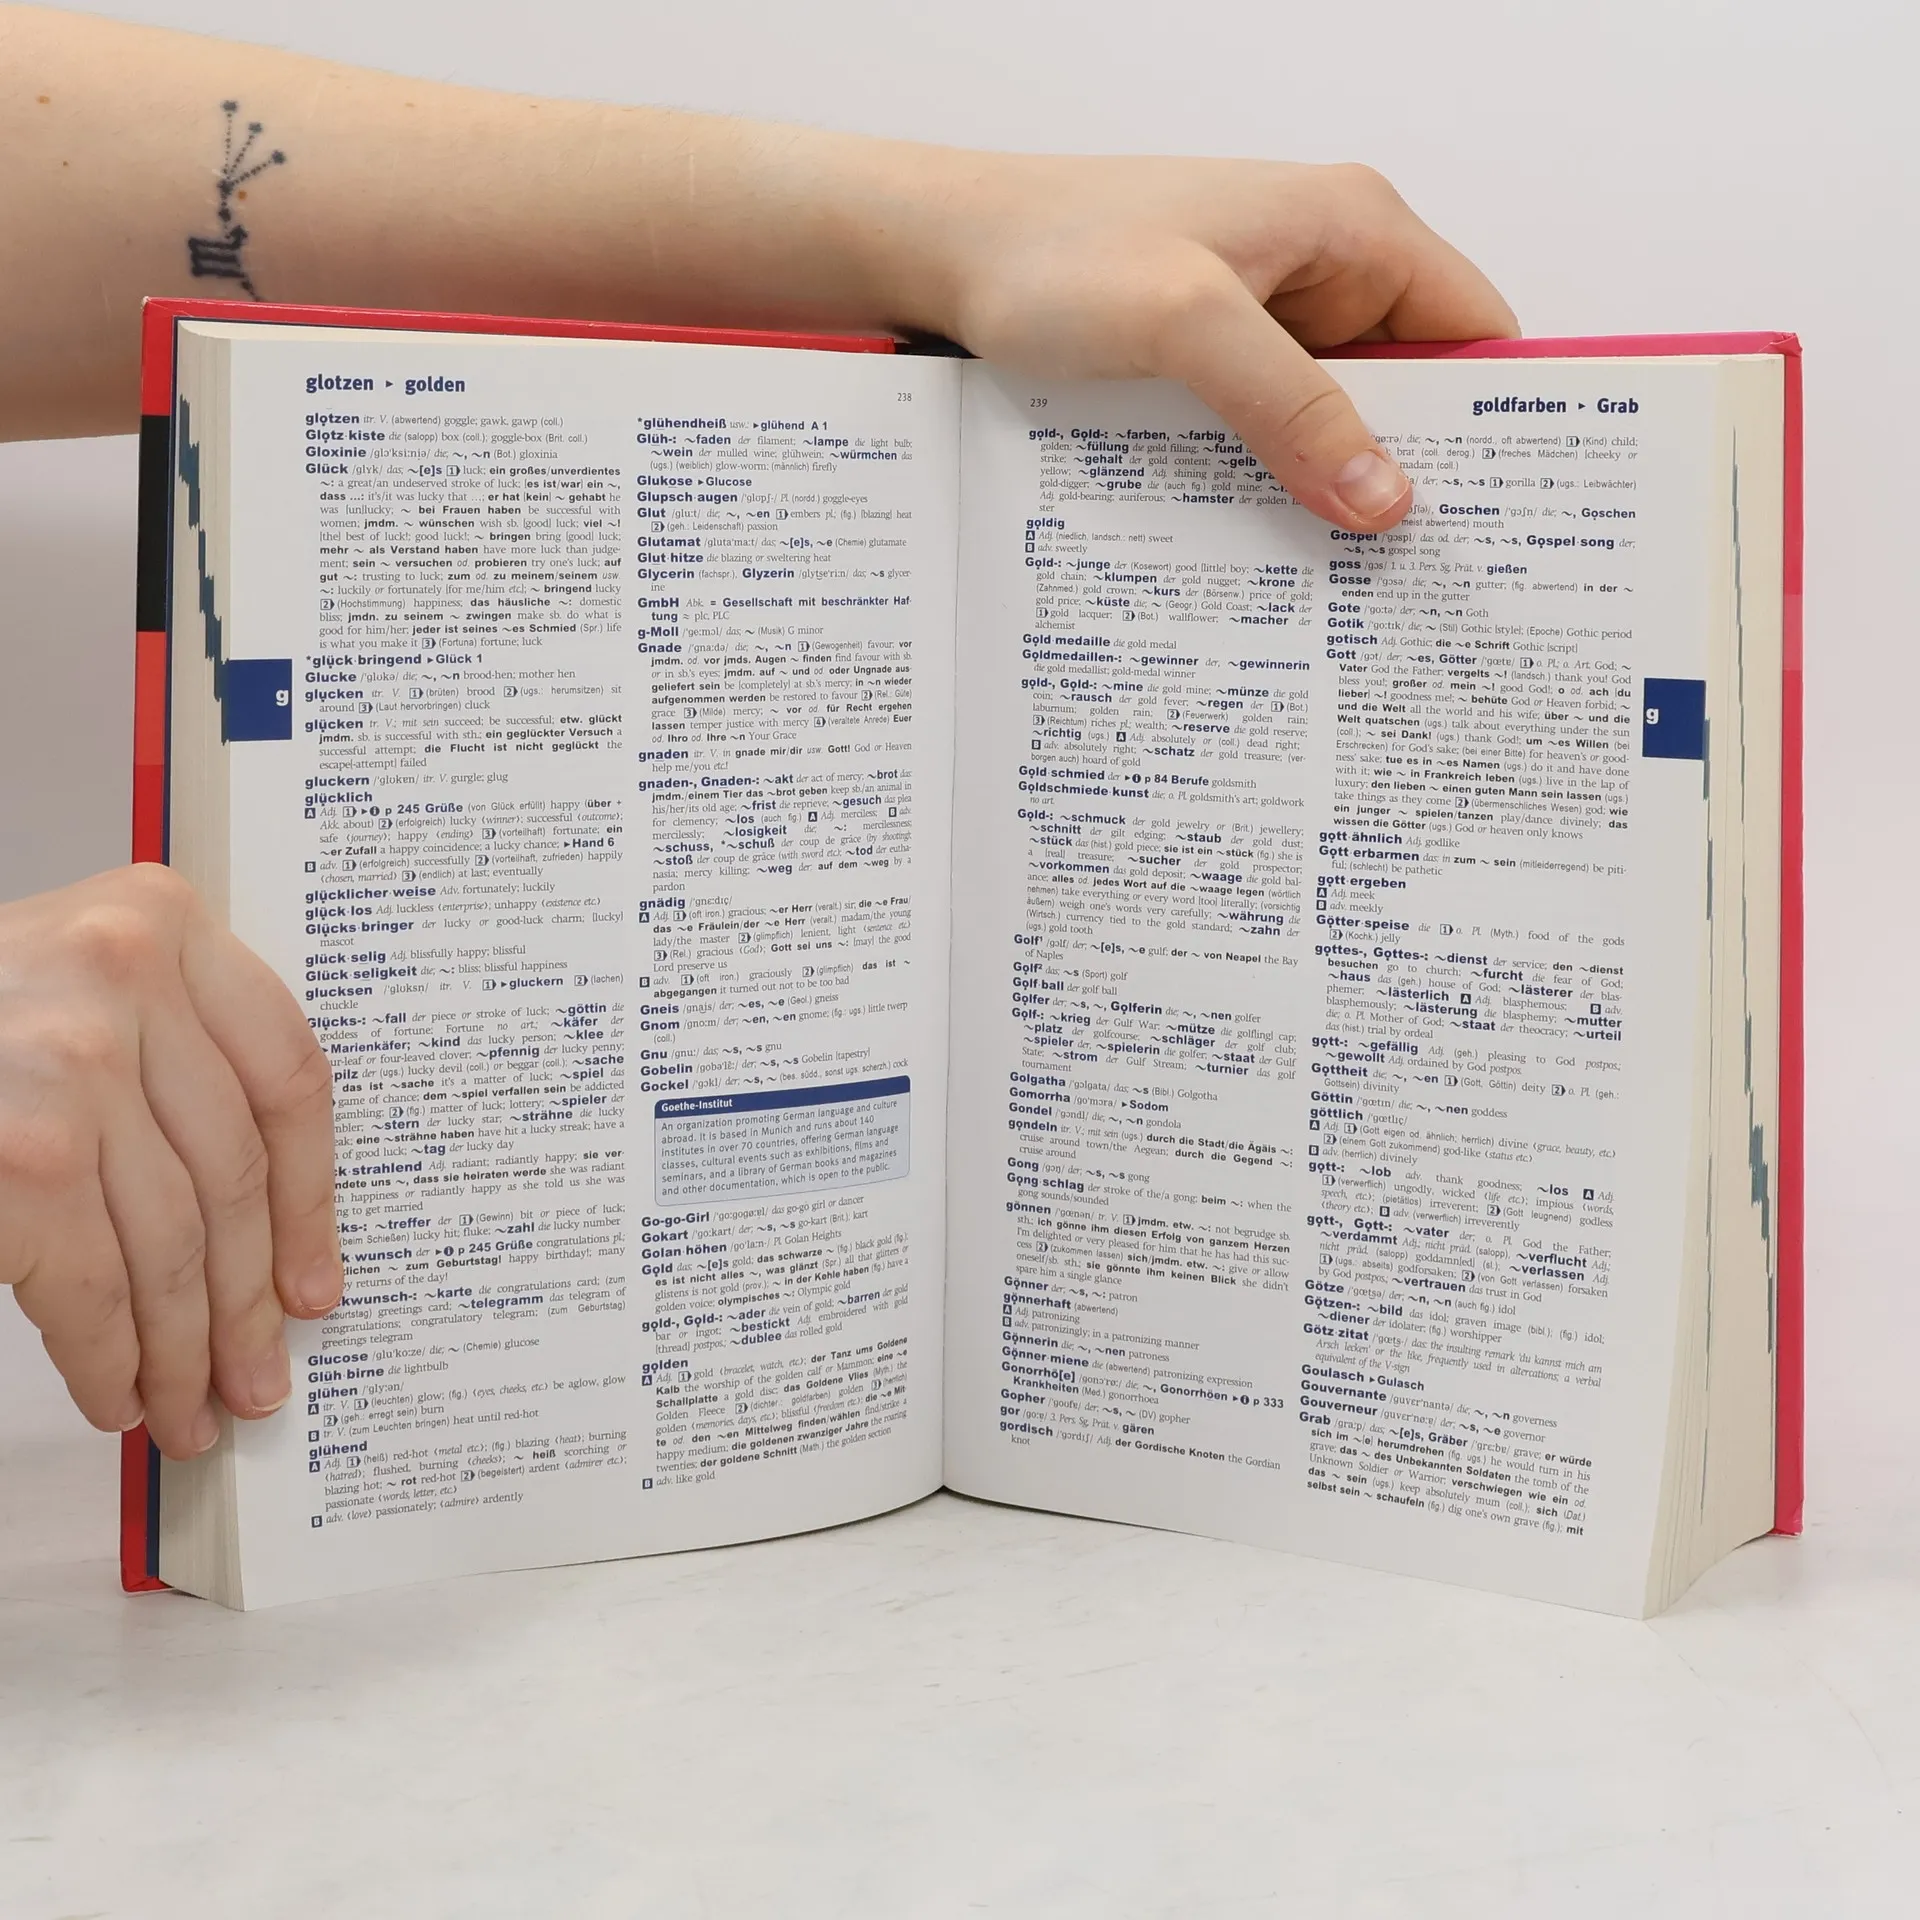 glotzen ▸ golden
238
glotzen itr. V. (abwertend) goggle; gawk, gawp (coll.)
Glotz·kiste die (salopp) box (coll.); goggle-box (Brit. coll.)
Gloxinie /glɔˈksiːniə/ die; ~, ~n (Bot.) gloxinia
Glück /glʏk/ das; ~[e]s 1 luck; ein großes/unverdientes
~: a great/an undeserved stroke of luck; [es ist/war] ein ~,
dass ...: it's/it was lucky that ...; er hat [kein] ~ gehabt he
was [un]lucky; ~ bei Frauen haben be successful with
women; jmdm. ~ wünschen wish sb. [good] luck; viel ~!
[the] best of luck!; good luck!; ~ bringen bring [good] luck;
mehr ~ als Verstand haben have more luck than judge-
ment; sein ~ versuchen od. probieren try one's luck; auf
gut ~: trusting to luck; zum od. zu meinem/seinem usw.
~: luckily or fortunately [for me/him etc.]; ~ bringend lucky
2 (Hochstimmung) happiness; das häusliche ~: domestic
bliss; jmdn. zu seinem ~ zwingen make sb. do what is
good for him/her; jeder ist seines ~es Schmied (Spr.) life
is what you make it 3 (Fortuna) fortune; luck
*glück·bringend ▸ Glück 1
Glucke /ˈglʊkə/ die; ~, ~n brood-hen; mother hen
glucken itr. V. 1 (brüten) brood 2 (ugs.: herumsitzen) sit
around 3 (Laut hervorbringen) cluck
glücken itr. V.; mit sein succeed; be successful; etw. glückt
jmdm. sb. is successful with sth.; ein geglückter Versuch a
successful attempt; die Flucht ist nicht geglückt the
escape[-attempt] failed
gluckern /ˈglʊkɐn/ itr. V. gurgle; glug
glücklich
A Adj. 1 ▸ p 245 Grüße (von Glück erfüllt) happy (über +
Akk. about) 2 (erfolgreich) lucky (winner); successful (outcome);
safe (journey); happy (ending) 3 (vorteilhaft) fortunate; ein
~er Zufall a happy coincidence; a lucky chance; ▸ Hand 6
B adv. 1 (erfolgreich) successfully 2 (vorteilhaft, zufrieden) happily
(chosen, married) 3 (endlich) at last; eventually
glücklicher·weise Adv. fortunately; luckily
glück·los Adj. luckless (enterprise); unhappy (existence etc.)
Glücks·bringer der lucky or good-luck charm; [lucky]
mascot
glück·selig Adj. blissfully happy; blissful
Glück·seligkeit die; ~: bliss; blissful happiness
glucksen /ˈglʊksn̩/ itr. V. 1 ▸ gluckern 2 (lachen)
chuckle
Glücks-: ~fall der piece or stroke of luck; ~göttin die
goddess of fortune; Fortune no art.; ~käfer der
▸ Marienkäfer; ~kind das lucky person; ~klee der
four-leaf or four-leaved clover; ~pfennig der lucky penny;
pilz der (ugs.) lucky devil (coll.) or beggar (coll.); ~sache
das ist ~sache it's a matter of luck; ~spiel das
game of chance; dem ~spiel verfallen sein be addicted
gambling; 2 (fig.) matter of luck; lottery; ~spieler der
~stern der lucky star; ~strähne die lucky
eine ~strähne haben have hit a lucky streak; have a
of good luck; ~tag der lucky day
strahlend Adj. radiant; radiantly happy; sie ver-
ndete uns ~, dass sie heiraten werde she was radiant
happiness or radiantly happy as she told us she was
ng to get married
~treffer der 1 (Gewinn) bit or piece of luck;
(beim Schießen) lucky hit; fluke; ~zahl die lucky number
wunsch der ▸ p 245 Grüße congratulations pl.;
lichen ~ zum Geburtstag! happy birthday!; many
returns of the day!
kwunsch-: ~karte die congratulations card; (zum
Geburtstag) greetings card; ~telegramm das telegram of
congratulations; congratulatory telegram; (zum Geburtstag)
greetings telegram
Glucose /gluˈkoːzə/ die; ~ (Chemie) glucose
Glüh·birne die lightbulb
glühen /ˈglyːən/
A itr. V. 1 (leuchten) glow; (fig.) (eyes, cheeks, etc.) be aglow, glow
2 (geh.: erregt sein) burn
B tr. V. (zum Leuchten bringen) heat until red-hot
glühend
A Adj. 1 (heiß) red-hot (metal etc.); (fig.) blazing (heat); burning
(hatred); flushed, burning (cheeks); ~ heiß scorching or
blazing hot; ~ rot red-hot 2 (begeistert) ardent (admirer etc.);
passionate (words, letter, etc.)
B adv. (love) passionately; (admire) ardently
*glühendheiß usw.: ▸ glühend A 1
Glüh-: ~faden der filament; ~lampe die light bulb;
~wein der mulled wine; glühwein; ~würmchen das
(ugs.) (weiblich) glow-worm; (männlich) firefly
Glukose ▸ Glucose
Glupsch·augen /ˈglʊpʃ-/ Pl. (nordd.) goggle-eyes
Glut /gluːt/ die; ~, ~en 1 embers pl.; (fig.) [blazing] heat
2 (geh.: Leidenschaft) passion
Glutamat /glutaˈmaːt/ das; ~[e]s, ~e (Chemie) glutamate
Glut·hitze die blazing or sweltering heat
Glycerin (fachspr.), Glyzerin /glytseˈriːn/ das; ~s glycer-
ine
GmbH Abk. = Gesellschaft mit beschränkter Haf-
tung ≈ plc, PLC
g-Moll /ˈgeːmɔl/ das; ~ (Musik) G minor
Gnade /ˈgnaːdə/ die; ~, ~n 1 (Gewogenheit) favour; vor
jmdm. od. vor jmds. Augen ~ finden find favour with sb.
or in sb.'s eyes; jmdm. auf ~ und od. oder Ungnade aus-
geliefert sein be [completely] at sb.'s mercy; in ~n wieder
aufgenommen werden be restored to favour 2 (Rel.: Güte)
grace 3 (Milde) mercy; ~ vor od. für Recht ergehen
lassen temper justice with mercy 4 (veraltete Anrede) Euer
od. Ihro od. Ihre ~n Your Grace
gnaden itr. V. in gnade mir/dir usw. Gott! God or Heaven
help me/you etc.!
gnaden-, Gnaden-: ~akt der act of mercy; ~brot das:
jmdm./einem Tier das ~brot geben keep sb./an animal in
his/her/its old age; ~frist die reprieve; ~gesuch das plea
for clemency; ~los (auch fig.) A Adj. merciless; B adv.
mercilessly; ~losigkeit die; ~: mercilessness;
~schuss, *~schuß der coup de grâce (by shooting);
~stoß der coup de grâce (with sword etc.); ~tod der eutha-
nasia; mercy killing; ~weg der: auf dem ~weg by a
pardon
gnädig /ˈgnɛːdɪç/
A Adj. 1 (oft iron.) gracious; ~er Herr (veralt.) sir; die ~e Frau/
das ~e Fräulein/der ~e Herr (veralt.) madam/the young
lady/the master 2 (glimpflich) lenient, light (sentence etc.)
3 (Rel.) gracious (God); Gott sei uns ~: [may] the good
Lord preserve us
B adv. 1 (oft iron.) graciously 2 (glimpflich) das ist ~
abgegangen it turned out not to be too bad
Gneis /gnais/ der; ~es, ~e (Geol.) gneiss
Gnom /gnoːm/ der; ~en, ~en gnome; (fig.: ugs.) little twerp
(coll.)
Gnu /gnuː/ das; ~s, ~s gnu
Gobelin /gobəˈlɛ̃ː/ der; ~s, ~s Gobelin [tapestry]
Gockel /ˈgɔkl̩/ der; ~s, ~ (bes. südd., sonst ugs. scherzh.) cock
Goethe-Institut
An organization promoting German language and culture
abroad. It is based in Munich and runs about 140
institutes in over 70 countries, offering German language
classes, cultural events such as exhibitions, films and
seminars, and a library of German books and magazines
and other documentation, which is open to the public.
Go-go-Girl /ˈgoːgogøːɐ̯l/ das go-go girl or dancer
Gokart /ˈgoːkart/ der; ~s, ~s go-kart (Brit.); kart
Golan·höhen /goˈlaːn-/ Pl. Golan Heights
Gold das; ~[e]s gold; das schwarze ~ (fig.) black gold (fig.);
es ist nicht alles ~, was glänzt (Spr.) all that glitters or
glistens is not gold (prov.); ~ in der Kehle haben (fig.) have a
golden voice; olympisches ~: Olympic gold
gold-, Gold-: ~ader die vein of gold; ~barren der gold
bar or ingot; ~bestickt Adj. embroidered with gold
[thread] postpos.; ~dublee das rolled gold
golden
A Adj. 1 gold (bracelet, watch, etc.); der Tanz ums Goldene
Kalb the worship of the golden calf or Mammon; eine ~e
Schallplatte a gold disc; das Goldene Vlies (Myth.) the
Golden Fleece 2 (dichter.: goldfarben) golden 3 (herrlich)
golden (memories, days, etc.); blissful (freedom etc.); die ~e Mit-
te od. den ~en Mittelweg finden/wählen find/strike a
happy medium; die goldenen zwanziger Jahre the roaring
twenties; der goldene Schnitt (Math.) the golden section
B adv. like gold
239
goldfarben ▸ Grab
gold-, Gold-: ~farben, ~farbig
golden; ~füllung die gold filling; ~fund
strike; ~gehalt der gold content; ~gelb
yellow; ~glänzend Adj. shining gold;
gold-digger; ~grube die (auch fig.) gold mine;
Adj. gold-bearing; auriferous; ~hamster der golden
ster
goldig
A Adj. (niedlich, landsch.: nett) sweet
B adv. sweetly
Gold-: ~junge der (Kosewort) good [little] boy; ~kette die
gold chain; ~klumpen der gold nugget; ~krone die
(Zahnmed.) gold crown; ~kurs der (Börsenw.) price of gold;
gold price; ~küste die; ~ (Geogr.) Gold Coast; ~lack der
1 gold lacquer; 2 (Bot.) wallflower; ~macher der
alchemist
Gold·medaille die gold medal
Goldmedaillen-: ~gewinner der, ~gewinnerin
die gold medallist; gold-medal winner
gold-, Gold-: ~mine die gold mine; ~münze die gold
coin; ~rausch der gold fever; ~regen der 1 (Bot.)
laburnum; golden rain; 2 (Feuerwerk) golden rain;
3 (Reichtum) riches pl.; wealth; ~reserve die gold reserve;
~richtig (ugs.) A Adj. absolutely or (coll.) dead right;
B adv. absolutely right; ~schatz der gold treasure; (ver-
borgen auch) hoard of gold
Gold·schmied der ▸ p 84 Berufe goldsmith
Goldschmiede·kunst die; o. Pl. goldsmith's art; goldwork
no art.
Gold-: ~schmuck der gold jewelry or (Brit.) jewellery;
~schnitt der gilt edging; ~staub der gold dust;
~stück das (hist.) gold piece; sie ist ein ~stück (fig.) she is
a [real] treasure; ~sucher der gold prospector;
~vorkommen das gold deposit; ~waage die gold bal-
ance; alles od. jedes Wort auf die ~waage legen (wörtlich
nehmen) take everything or every word [too] literally; (vorsichtig
äußern) weigh one's words very carefully; ~währung die
(Wirtsch.) currency tied to the gold standard; ~zahn der
(ugs.) gold tooth
Golf¹ /gɔlf/ der; ~[e]s, ~e gulf; der ~ von Neapel the Bay
of Naples
Golf² das; ~s (Sport) golf
Golf·ball der golf ball
Golfer der; ~s, ~, Golferin die; ~, ~nen golfer
Golf-: ~krieg der Gulf War; ~mütze die golf[ing] cap;
~platz der golfcourse; ~schläger der golf club;
~spieler der, ~spielerin die golfer; ~staat der Gulf
State; ~strom der Gulf Stream; ~turnier das golf
tournament
Golgatha /ˈgɔlgata/ das; ~s (Bibl.) Golgotha
Gomorrha /goˈmɔra/ ▸ Sodom
Gondel /ˈgɔndl̩/ die; ~, ~n gondola
gondeln itr. V.; mit sein (ugs.) durch die Stadt/die Ägäis ~:
cruise around town/the Aegean; durch die Gegend ~:
cruise around
Gong /gɔŋ/ der; ~s, ~s gong
Gong·schlag der stroke of the/a gong; beim ~: when the
gong sounds/sounded
gönnen /ˈgœnən/ tr. V. 1 jmdm. etw. ~: not begrudge sb.
sth.; ich gönne ihm diesen Erfolg von ganzem Herzen
I'm delighted or very pleased for him that he has had this suc-
cess 2 (zukommen lassen) sich/jmdm. etw. ~: give or allow
oneself/sb. sth.; sie gönnte ihm keinen Blick she didn't
spare him a single glance
Gönner der; ~s, ~: patron
gönnerhaft (abwertend)
A Adj. patronizing
B adv. patronizingly; in a patronizing manner
Gönnerin die; ~, ~nen patroness
Gönner·miene die (abwertend) patronizing expression
Gonorrhö[e] /gonɔˈrøː/ die; ~, Gonorrhöen ▸ p 333
Krankheiten (Med.) gonorrhoea
Gopher /ˈgoufɐ/ der; ~s, ~s (DV) gopher
gor /goːɐ̯/ 3. Pers. Sg. Prät. v. gären
gordisch /ˈgɔrdɪʃ/ Adj. der Gordische Knoten the Gordian
knot
/ˈgøːrə/ die; ~, ~n (nordd., oft abwertend) 1 (Kind) child;
brat (coll. derog.) 2 (freches Mädchen) [cheeky or
madam (coll.)
der; ~s, ~s 1 gorilla 2 (ugs.: Leibwächter)
Goschen /ˈgɔʃn̩/ die; ~, Goschen
meist abwertend) mouth
Gospel /ˈgɔspl̩/ das od. der; ~s, ~s, Gospel·song der;
~s, ~s gospel song
goss /gɔs/ 1. u. 3. Pers. Sg. Prät. v. gießen
Gosse /ˈgɔsə/ die; ~, ~n gutter; (fig. abwertend) in der ~
enden end up in the gutter
Gote /ˈgoːtə/ der; ~n, ~n Goth
Gotik /ˈgoːtɪk/ die; ~ (Stil) Gothic [style]; (Epoche) Gothic period
gotisch Adj. Gothic; die ~e Schrift Gothic [script]
Gott /gɔt/ der; ~es, Götter /ˈgœtɐ/ 1 o. Pl.; o. Art. God; ~
Vater God the Father; vergelts ~! (landsch.) thank you! God
bless you!; großer od. mein ~! good God!; o od. ach [du
lieber] ~! goodness me!; ~ behüte God or Heaven forbid; ~
und die Welt all the world and his wife; über ~ und die
Welt quatschen (ugs.) talk about everything under the sun
(coll.); ~ sei Dank! (ugs.) thank God!; um ~es Willen (bei
Erschrecken) for God's sake; (bei einer Bitte) for heaven's or good-
ness' sake; tue es in ~es Namen (ugs.) do it and have done
with it; wie ~ in Frankreich leben (ugs.) live in the lap of
luxury; den lieben ~ einen guten Mann sein lassen (ugs.)
take things as they come 2 (übermenschliches Wesen) god; wie
ein junger ~ spielen/tanzen play/dance divinely; das
wissen die Götter (ugs.) God or heaven only knows
gott·ähnlich Adj. godlike
Gott·erbarmen das: in zum ~ sein (mitleiderregend) be piti-
ful; (schlecht) be pathetic
gott·ergeben
A Adj. meek
B adv. meekly
Götter·speise die 1 o. Pl. (Myth.) food of the gods
2 (Kochk.) jelly
gottes-, Gottes-: ~dienst der service; den ~dienst
besuchen go to church; ~furcht die fear of God;
~haus das (geh.) house of God; ~lästerer der blas-
phemer; ~lästerlich A Adj. blasphemous; B adv.
blasphemously; ~lästerung die blasphemy; ~mutter
die; o. Pl. Mother of God; ~staat der theocracy; ~urteil
das (hist.) trial by ordeal
gott-: ~gefällig Adj. (geh.) pleasing to God postpos.;
~gewollt Adj. ordained by God postpos.
Gottheit die; ~, ~en 1 (Gott, Göttin) deity 2 o. Pl. (geh.:
Gottsein) divinity
Göttin /ˈgœtɪn/ die; ~, ~nen goddess
göttlich /ˈgœtlɪç/
A Adj. 1 (Gott eigen od. ähnlich; herrlich) divine (grace, beauty, etc.)
2 (einem Gott zukommend) god-like (status etc.)
B adv. (herrlich) divinely
gott-: ~lob adv. thank goodness; ~los A Adj.
1 (verwerflich) ungodly, wicked (life etc.); impious (words,
speech, etc.); (pietätlos) irreverent; 2 (Gott leugnend) godless
(theory etc.); B adv. (verwerflich) irreverently
gott-, Gott-: ~vater der; o. Pl. God the Father;
~verdammt Adj.; nicht präd. (salopp), ~verflucht Adj.;
nicht präd. (salopp) goddamn[ed] (sl.); ~verlassen Adj.
1 (ugs.: abseits) godforsaken; 2 (von Gott verlassen) forsaken
by God postpos.; ~vertrauen das trust in God
Götze /ˈgœtsə/ der; ~n, ~n (auch fig.) idol
Götzen-: ~bild das idol; graven image (bibl.); (fig.) idol;
~diener der idolater; (fig.) worshipper
Götz·zitat /ˈgœts-/ das the insulting remark 'du kannst mich am
Arsch lecken' or the like, frequently used in altercations; a verbal
equivalent of the V-sign
Goulasch ▸ Gulasch
Gouvernante /guvɛrˈnantə/ die; ~, ~n governess
Gouverneur /guvɛrˈnøːɐ̯/ der; ~s, ~e governor
Grab /graːp/ das; ~[e]s, Gräber /ˈgrɛːbɐ/ grave; er würde
sich im ~[e] herumdrehen (fig. ugs.) he would turn in his
grave; das ~ des Unbekannten Soldaten the tomb of the
Unknown Soldier or Warrior; verschwiegen wie ein od.
das ~ sein (ugs.) keep absolutely mum (coll.); sich (Dat.)
selbst sein ~ schaufeln (fig.) dig one's own grave (fig.); mit
g
g